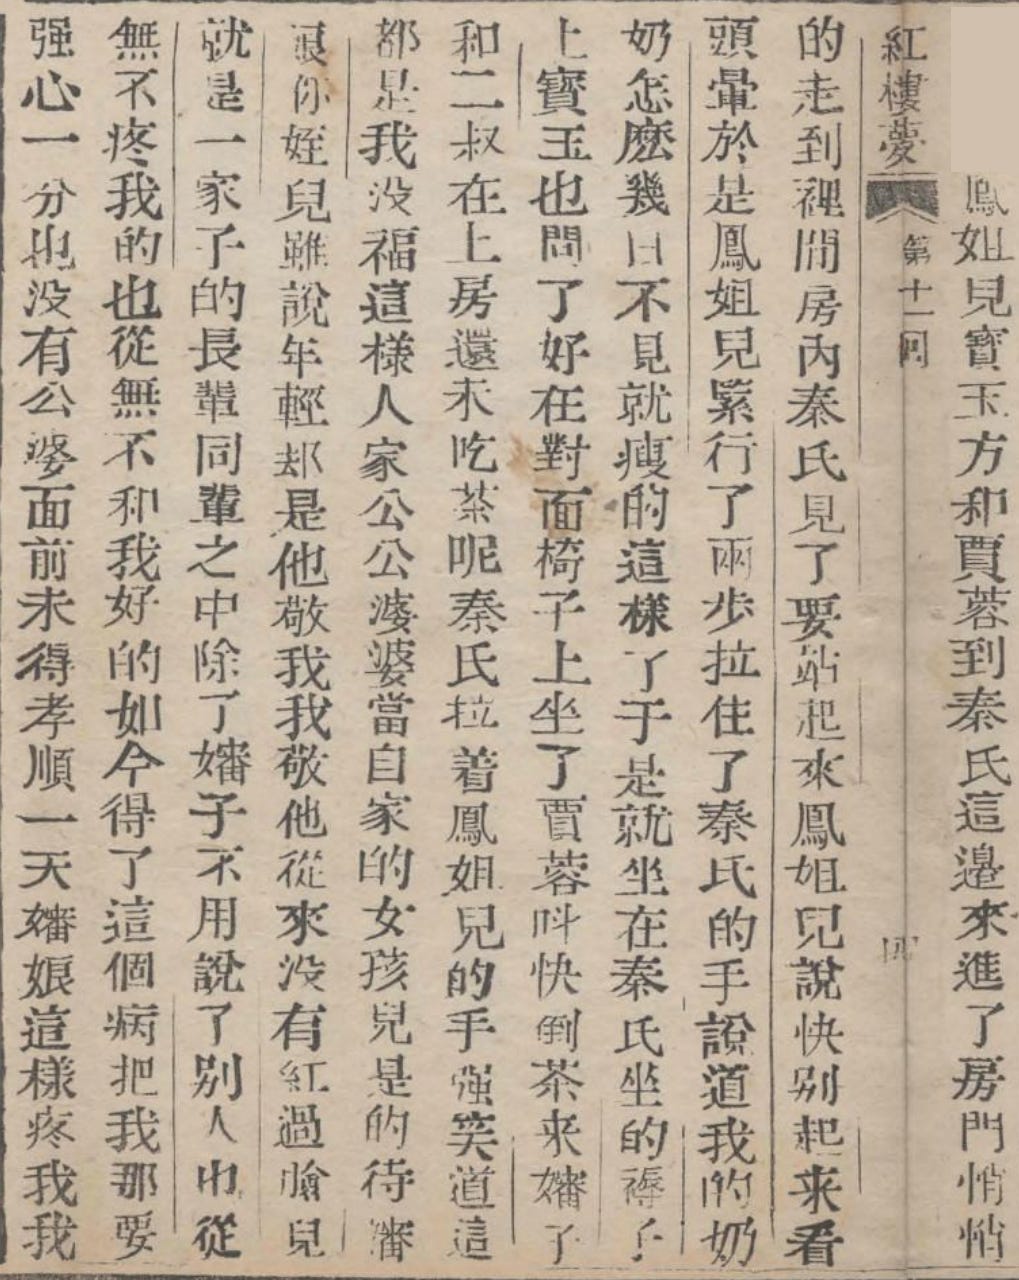 鳳姐兒寶玉方和賈蓉到秦氏這邊來進了房門悄悄
紅樓夢 第十一回 四
的走到裡間房內秦氏見了要站起來鳳姐兒說快別起来看
頭暈於是鳳姐兒緊行了兩步拉住了秦氏的手說道我的奶
奶怎麽幾日不見就瘦的這樣了于是就坐在秦氏坐的褥子
上寳玉也問了好在對面椅子上坐了賈蓉呌快倒茶来嬸子
和二叔在上房還未吃茶呢秦氏拉着鳳姐兒的手强笑道這
都是我没福這樣人家公公婆婆當自家的女孩兒是的待嬸
娘你姪兒雖說年輕却是他敬我我敬他從來没有紅過臉兒
就是一家子的長輩同輩之中除了嬸子不用說了别人也從
無不疼我的也從無不和我好的如今得了這個病把我那要
强心一分也没有公婆面前未得孝順一天嬸娘這樣疼我我